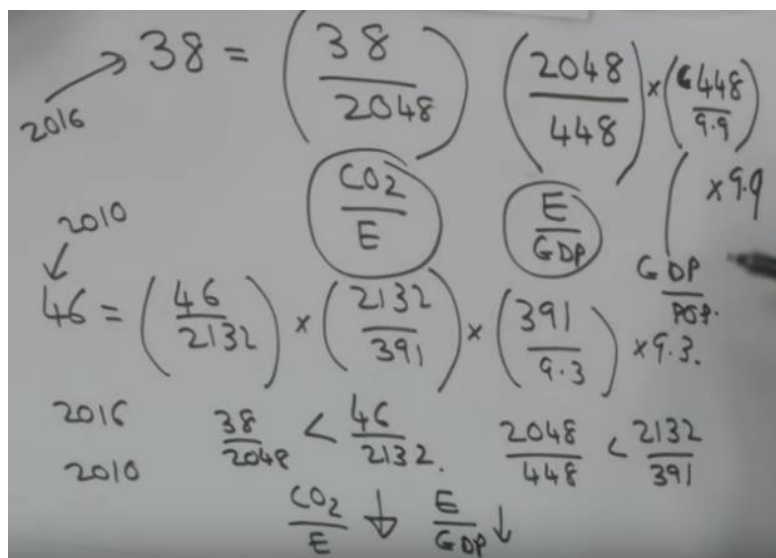 2016 → 38 = (38/2048) (2048/448) × (448/9.9) × 9.9
CO2/E E/GDP GDP/POP.
2010
46 = (46/2132) × (2132/391) × (391/9.3) × 9.3.
2016 38/2048 < 46/2132. 2048/448 < 2132/391
2010
CO2/E ↓ E/GDP ↓